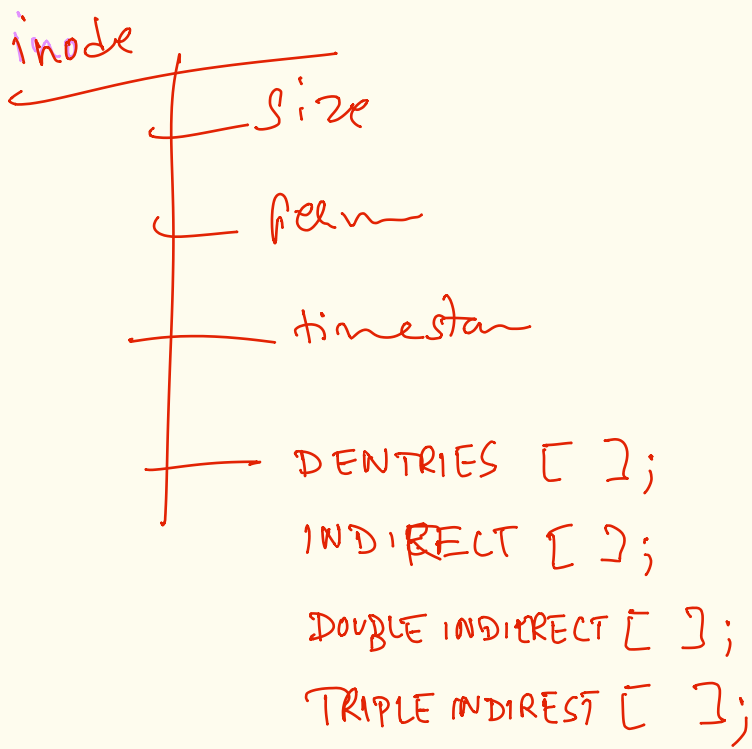 inode
size
perm
timestam
DENTRIES [ ];
INDIRECT [ ];
DOUBLE INDIRECT [ ];
TRIPLE INDIREST [ ];